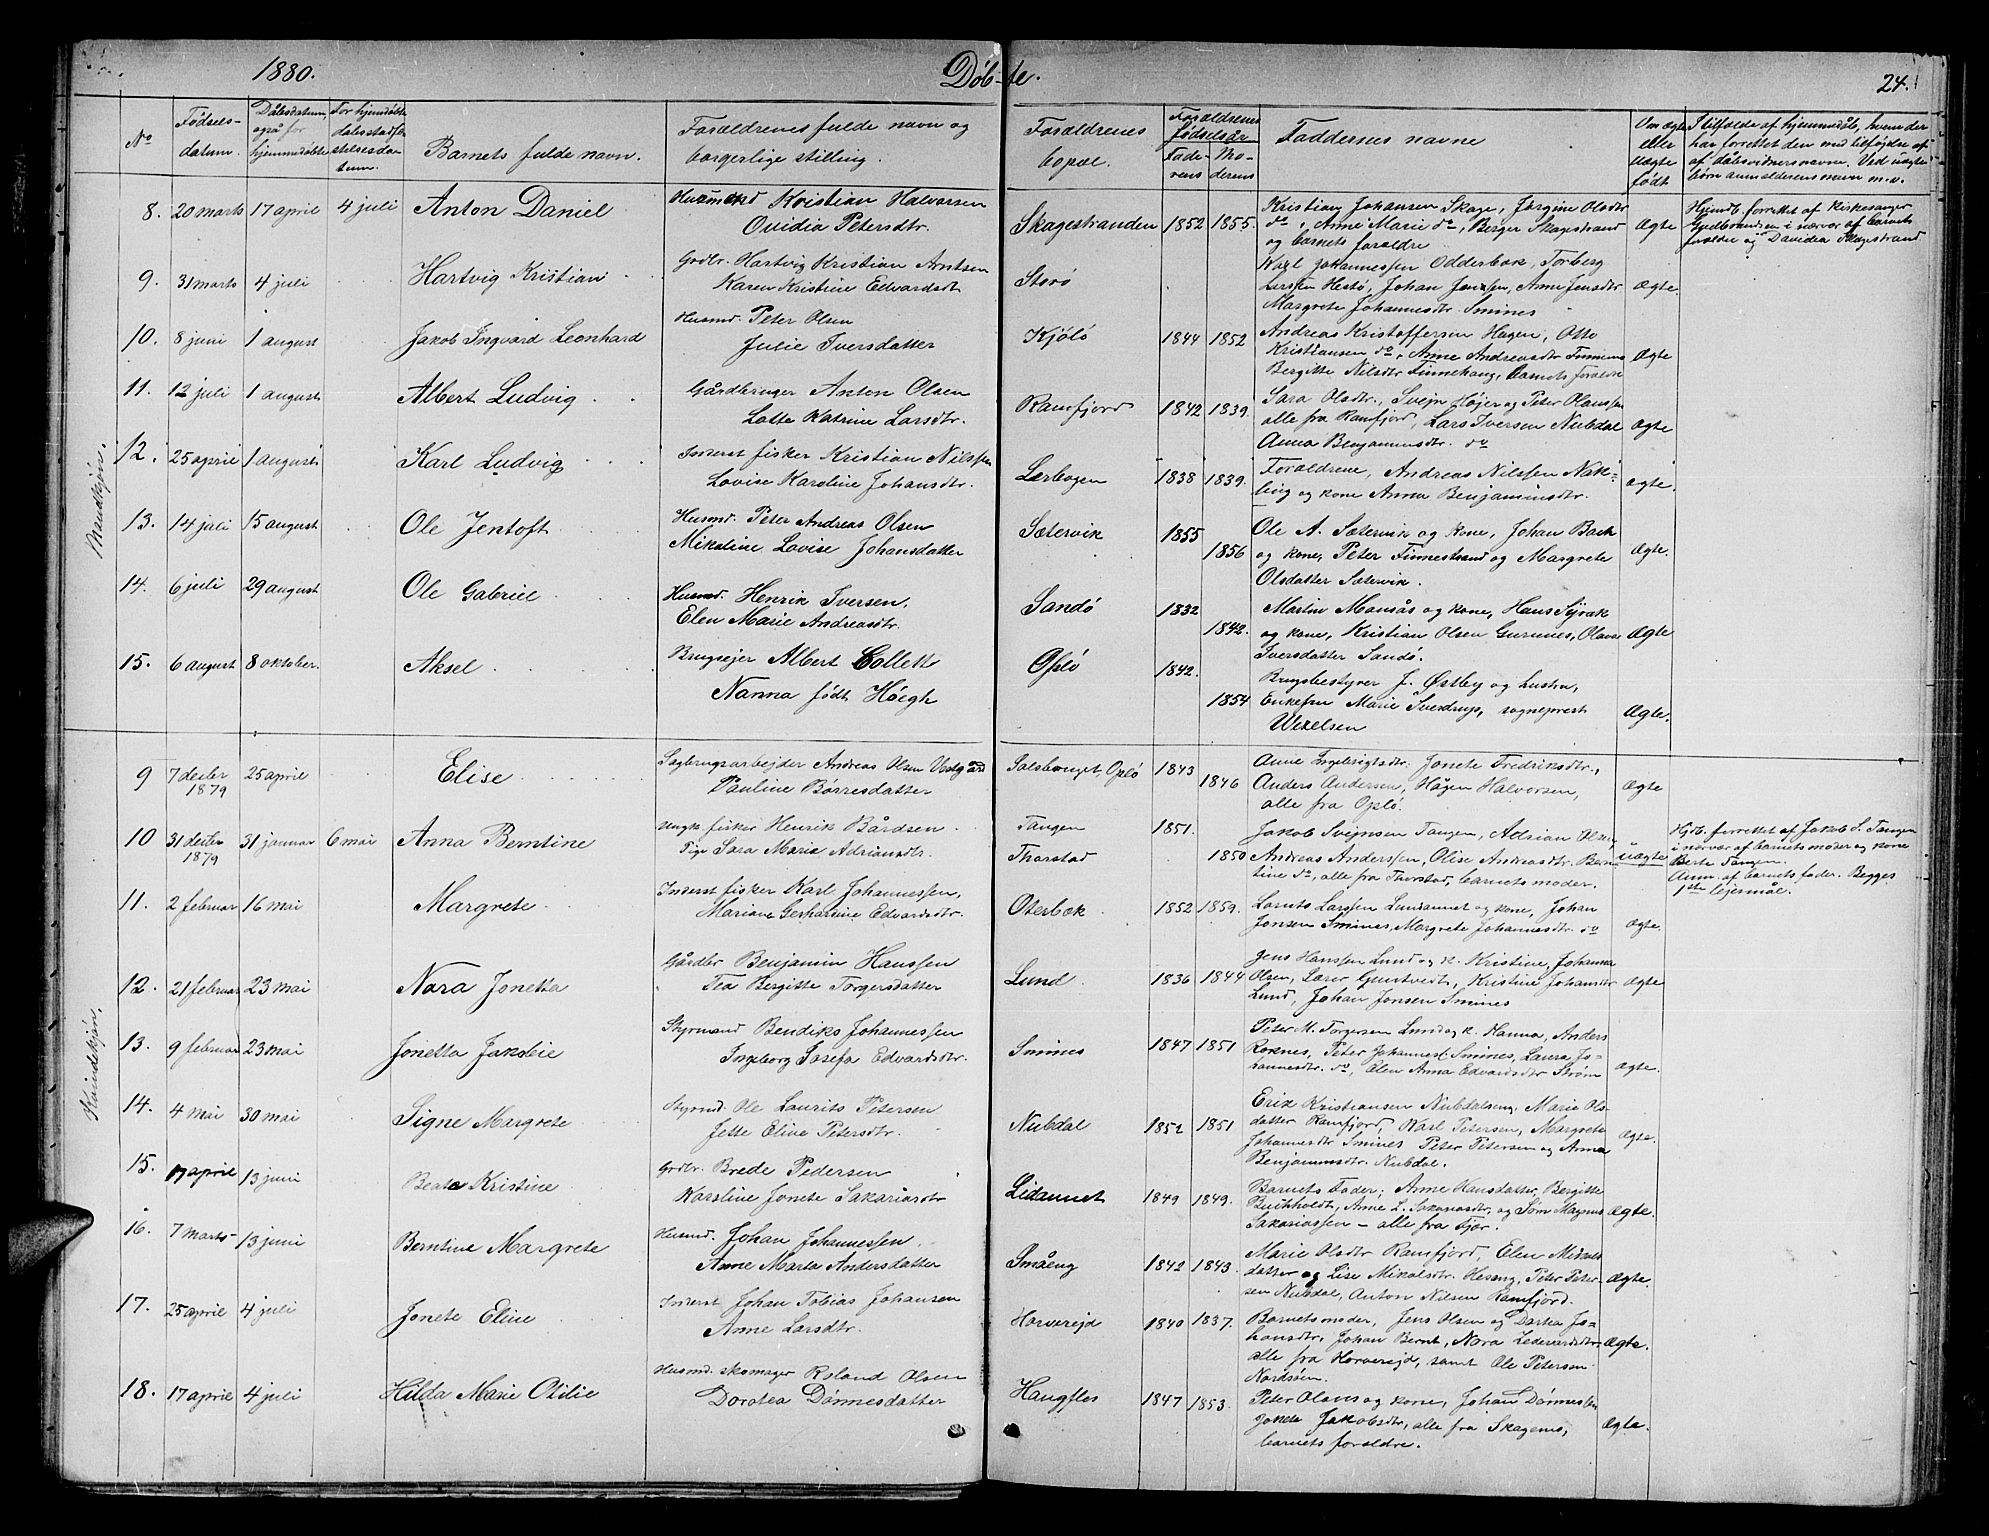 1880.
Døb-te.
24.
No
Fødsels-
datum.
Dåbsdatum,
også for
hjemmdøbte
For hjemdøbte
dåbsstadfæ-
stelsesda-
tum.
Barnets fulde navn.
Forældrenes fulde navn og
borgerlige stilling.
Forældrenes
bopæl.
Forældrenes
fødselsår
Fade-
rens
Mo-
derens
Faddernes navne
Om ægte
eller
uægte
født
I tilfælde af hjemmedåb, hvem der
har forrettet den med tilføjelse af
af dåbsvidners navne. Ved uægte
børn anmelderens navn m.v.
Mandkjøn.
8. 20 marts 17 april 4 juli Anton Daniel
Husmand Kristian Halvorsen
Ovidia Petersdtr.
Skagestranden 1852 1855.
Kristian Johansen Skage, Jørgine Olsdtr
do, Anne Marie do, Berger Skagestrand
og barnets forældre
Ægte
Hjemd. forrettet af kirkesanger
Gulbrandsen i nærvær af barnets
forældre og Davidea Skagestrand.
9. 31 marts 4 juli Hartvig Kristian
Grdbr. Hartvig Kristian Arntsen
Karen Kristine Edvardsdt
Storø
Karl Johannessen Odderbæk, Torberg
Larssen Hestø, Johan Jensen, Anne Jensdtr
Margrete Johannesdtr. Smines
Ægte.
10. 8 juni 1 august Jakob Ingvard Leonhard
Husmd. Peter Olsen
Julie Iversdatter
Kjølø 1844 1852
Andreas Kristoffersen Hagen, Otto
Kristiansen do, Anne Andreasdtr Finnema
Bergitte Nilsdtr Finnehaug, barnets forældre
Ægte
11. 12 juli 1 august Albert Ludvig
Gårdbruger Anton Olsen
Lotte Katrine Larsdtr.
Ramfjord 1842 1839.
Sara Olsdtr., Svejn Højer og Peter Olaussen
alle fra Ramfjord, Lars Iversen Nubdal
Anna Benjaminsdtr. do
Ægte
12. 25 april 1 august Karl Ludvig
Inderst fisker Kristian Nilssen
Lovise Karoline Johansdtr.
Lerbogen 1838 1839.
Forældrene, Andreas Nilssen Nak-
ling og kone Anna Benjaminsdtr.
Ægte.
13. 14 juli 15 august Ole Jentoft
Husmd. Peter Andreas Olsen
Mikaline Lovise Johansdatter
Sætervik 1855
1856
Ole A. Sætervik og kone, Johan Bach
og kone, Peter Finnestrand og Margrete
Olsdatter Sætervik.
Ægte.
14. 6 juli 29 august Ole Gabriel
Husmd. Henrik Iversen.
Elen Marie Andreasdtr.
Sandø 1832
1842.
Martin Mansås og kone, Hans
og kone, Kristian Olsen Gurvines, Olava
Iversdatter Sandø.
Ægte
15. 6 august 8 oktober. Aksel
Brugsejer Albert Collett
Nanna født Høegh
Opløe 1842.
1854
Brugsbestyrer J. Østby og hustru,
Enkefru Marie Sverdrup, sogneprest
Wexelsen
Ægte.
Kvindekjøn.
9 7 decbr 25 april Elise
1879
Sagbrugsarbejder Andreas Olsen Vestgård
Pauline Børresdatter
Salsbruget, Opløe 1843
1846
Anne Ingebrigtsdtr. Jonete Fredriksdtr.,
Anders Andersen, Hågen Halvorsen,
alle fra Opløe.
Ægte
10 31 decbr 31 januar 6 mai Anna Berntine
1879
Ungk. fisker Henrik Bårdsen
Pige Sara Marie Adriansdtr.
Tangen 1851.
Thorstad 1850
Jakob Svejnsen Tangen, Adrian Olsen
Andreas Anderssen, Olise Andreasdtr. Bern-
tine do, alle fra Thorstad, barnets moder.
Uægte
Hjdb. forrettet af Jakob S. Tangen
i nærvær af barnets moder og kone
Berte Tangen.
Anm. af barnets fader. Begges
1ste lejermål.
11. 2 februar 16 mai Margrete
Inderst fisker Karl Johannessen,
Mariane Gerhardine Edvardsdtr.
Oterbæk 1852 1859.
Laruts Larssen Lundannet og kone, Johan
Jonsen Smines, Margrete Johannesdtr. do
Ægte.
12. 21 februar 23 mai Nora Jonetta
Gårdbr Benjamin Hanssen
Tea Bergitte Torgersdatter
Lund 1836 1844
Jens Hanssen Lund og k. Kristine, Johanna
Olsen, Lærer Gjentvedt, Kristine Johansdtr
Lund, Johan Jonsen Smines
Ægte
13. 9 februar 23 mai Jonetta Jakobie
Styrmand Bendiks Johannessen
Ingeborg Josefa Edvardsdtr.
Smines 1847 1851
Peter M. Torgersen Lund og k. Hanna, Anders
Roknes, Peter Johannesd. Smines, Laura Jo-
hannesdtr. do, Elen Anna Edvardsdtr Strøm
Ægte.
14. 4 mai 30 mai Signe Margrete
Styrmd. Ole Laurits Petersen
Jette Eline Petersdtr.
Nubdal 1852 1851
Erik Kristiansen Nubdalseng, Marie Ols-
datter Ramfjord, Karl Petersen, Margrete
Johannesdtr Smines Peter Petersen og Anna
Benjaminsdtr. Nubdal.
Ægte.
15. 17 april 13 juni Beate Kristine
Grdbr. Brede Pedersen
Karoline Jonete Sakariasdtr
Lidannet 1849 1849.
Barnets Fader, Anne Hansdatter, Bergitte
Buchholdt, Anne L. Sakariasdtr. og Søm Magnus
Sakariassen – alle fra Fjær.
Ægte.
16. 7 marts 13 juni Berntine Margrete
Husmd. Johan Johannessen.
Anne Marta Andersdatter
Småeng 1842 1843.
Marie Olsdtr Ramfjord, Elen Mikals
datter og Lise Mikalsdtr. Heseng, Peter Peter-
sen Nubdal, Anton Nilsen Ramfjord.
Ægte.
17. 25 april 4 juli Jonete Eline
Inderst Johan Tobias Johansen
Anne Larsdtr.
Horverejd 1840 1837.
Barnets moder, Jens Olsen og Dorkea Jo-
hansdtr., Johan Bernt, Nora Ledevardsdtr.
alle fra Horverejd, samt Ole Petersen
Nordsøen.
Ægte.
18. 17 april 4 juli Hilda Marie Otilie
Husmd. skomager Roland Olsen
Dorotea Dønnesdatter
Haugfles 1847 1853.
Peter Olaus og kone, Johan Dønnesen
Jonete Jakobsdtr, alle fra Skagemo,
barnets forældre.
Ægte.